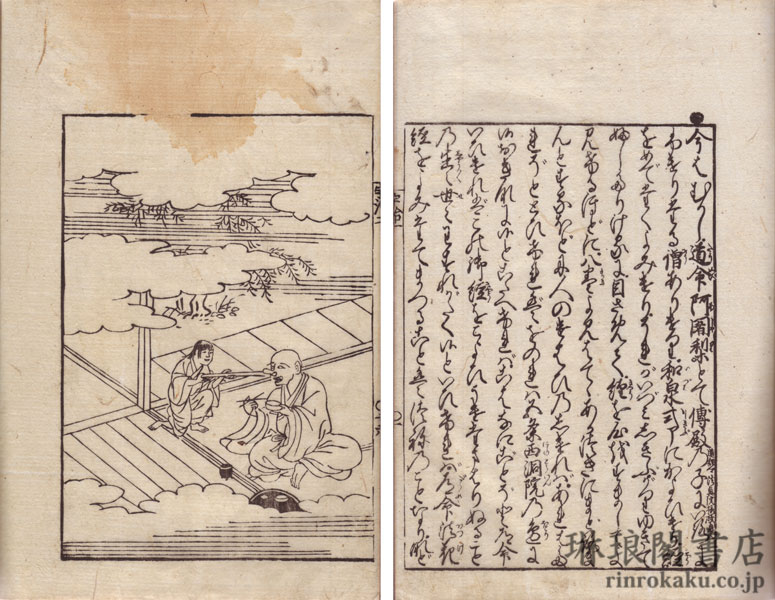 今はむかし道命阿闍梨とて傅殿の子に色に
ふけりたる僧ありけり和泉式部にかよひけり経
をめでたくよみけりそれがいづみしきぶがりゆきて
ふしたりけるに目さめて経を心をすまして
よみけるほどに八巻よみはててあかつきにまどろま
んとするほどに人のけはひのしければあれはた
れぞととひければをのれは五条西洞院の辺に
候翁に候とこたへければこはなにごとぞと道命
いひければこの御経をこよひうけたまはりぬること
の生々世々わすれがたく候といひければ道命法花
経をよみたてまつることはつねのことなりなど
琳琅閣書店
rinrokaku.co.jp